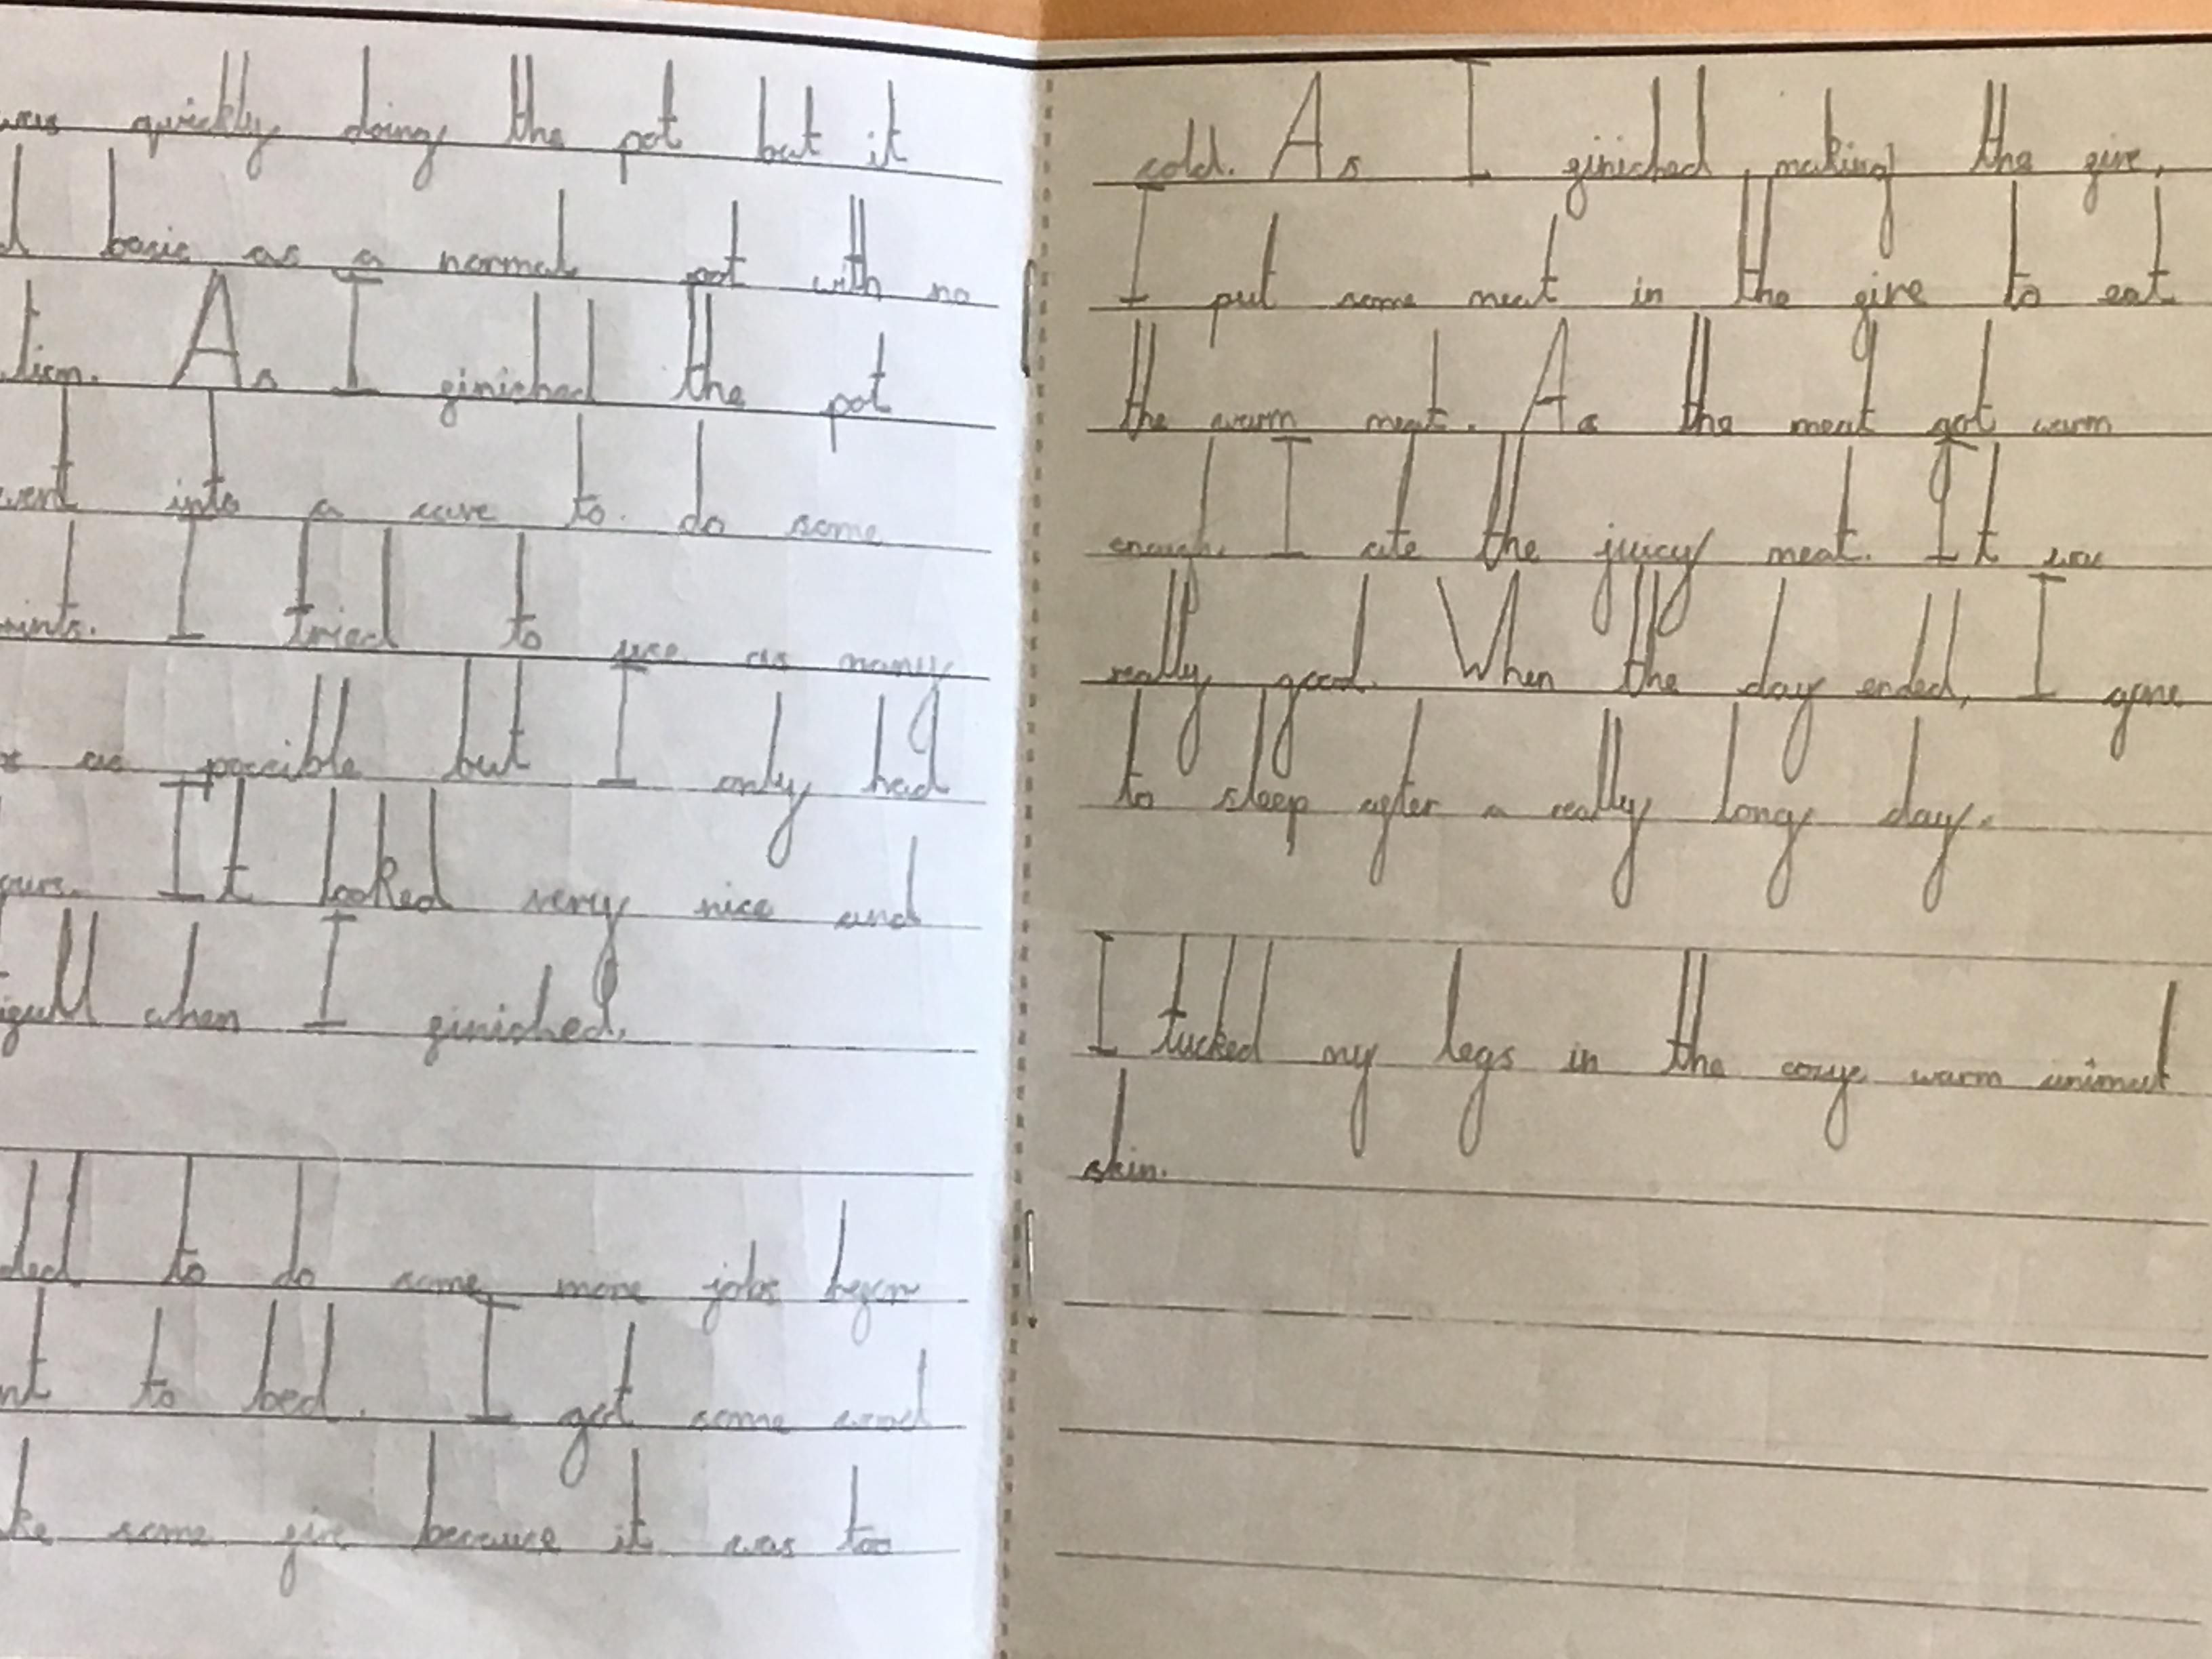 was quickly doing the pot but it
basic as a normal pot with no
As I finished the pot
went into a cave to do some
I tried to use as many
as possible but I only had
It looked very nice and
when I finished.
to do some more jobs before
to bed. I got some wood
some fire because it was too
cold. As I finished making the fire,
I put some meat in the fire to eat
the warm meat. As the meat got warm
enough, I ate the juicy meat. It was
really good. When the day ended, I gone
to sleep after a really long day.
I tucked my legs in the cozye warm animal
skin.